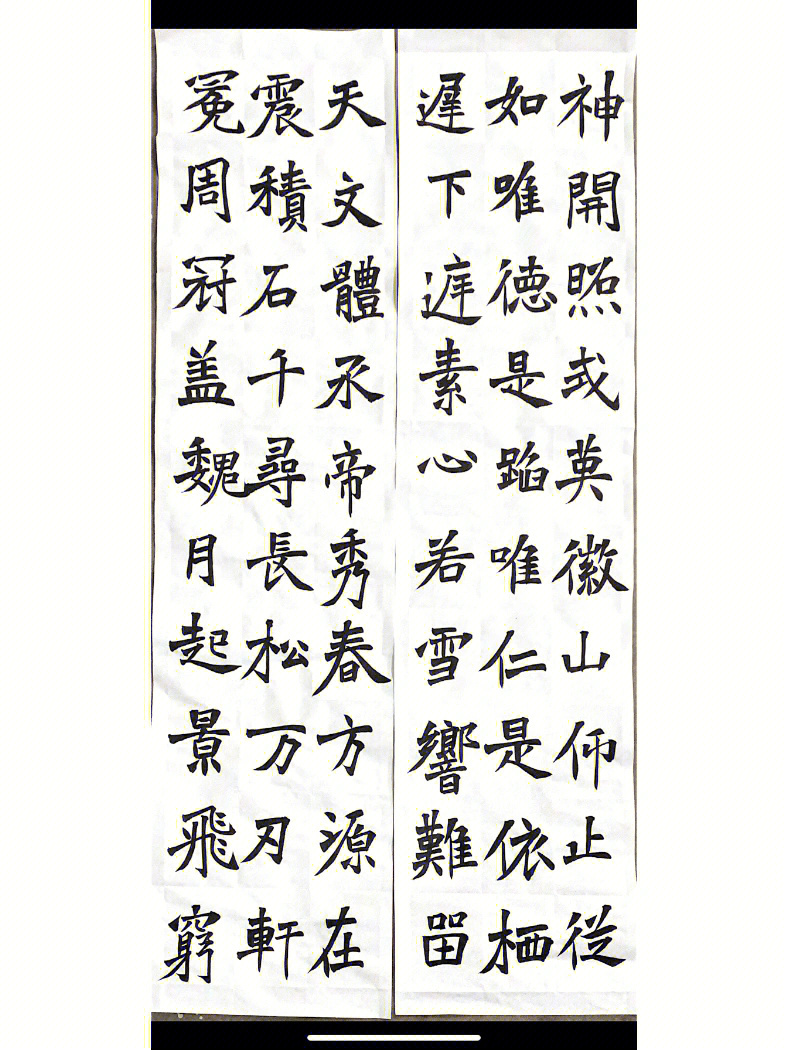 神開照式英徽山仰止從
如唯德是蹈唯仁是依栖
遲下庭素心若雪響難留
天文體承帝秀春方源在
震積石千尋長松万刃軒
冕周冠盖魏月起景飛窮